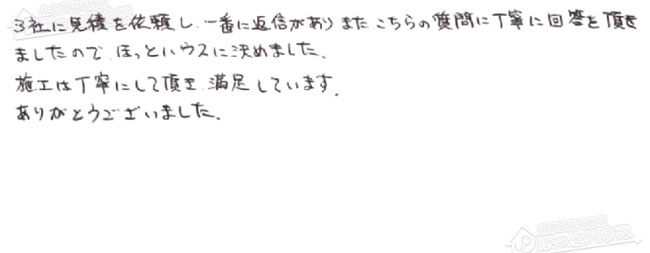 3社に見積を依頼し、一番に返信があり また こちらの質問に丁寧に回答を頂き
ましたので、ほっとハウスに決めました、
施工は丁寧にして頂き、満足しています。
ありがとうございました。
ほっとハウス